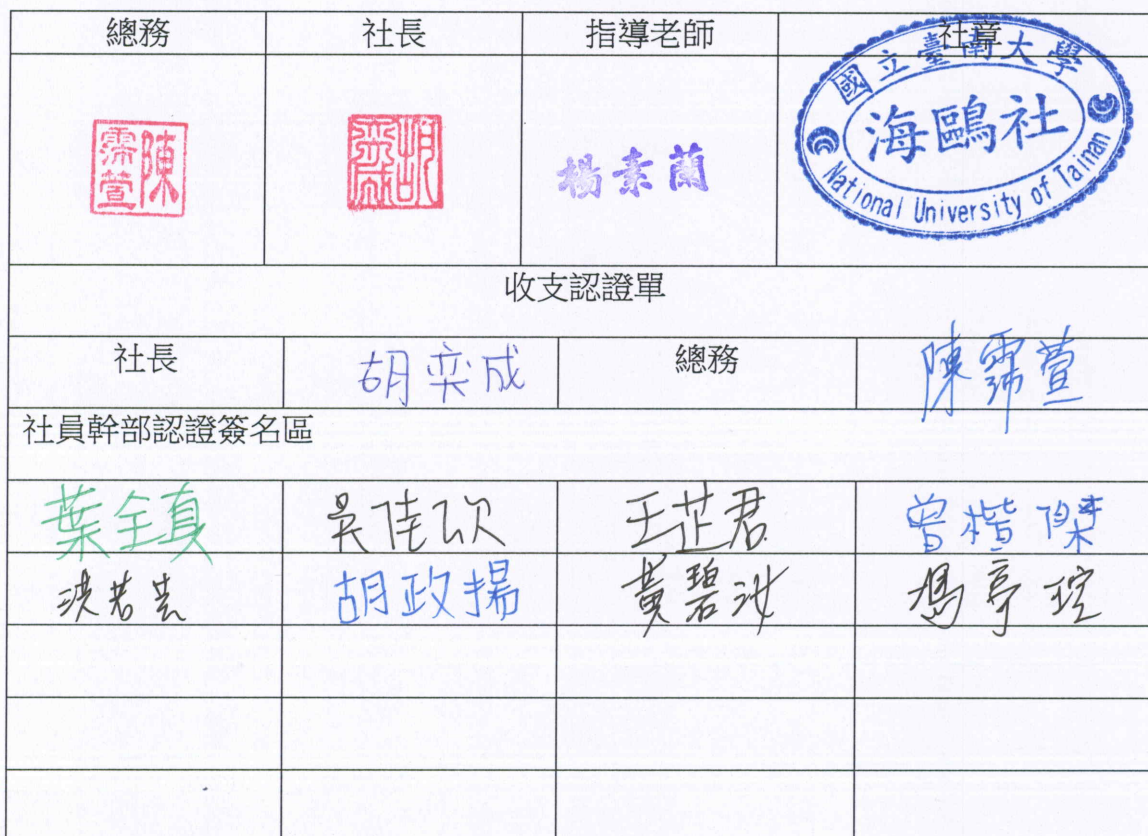 總務 社長 指導老師 社章
陳霈萱 胡奕成 楊素蘭 國立臺南大學
海鷗社
National University of Tainan
收支認證單
社長 胡奕成 總務 陳霈萱
社員幹部認證簽名區
葉全真 吳佳欣 王芷君 曾楷傑
胡政揚 黃碧汝 馮亭瑄